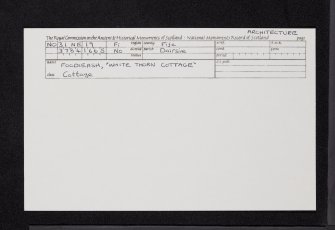 ARCHITECTURE
The Royal Commission on the Ancient & Historical Monuments of Scotland - National Monuments Record of Scotland page
NO 31 NE 19 Fi Fife
3784 1665 No Dairsie
FOODIEASH, "WHITE THORN COTTAGE"
Cottage